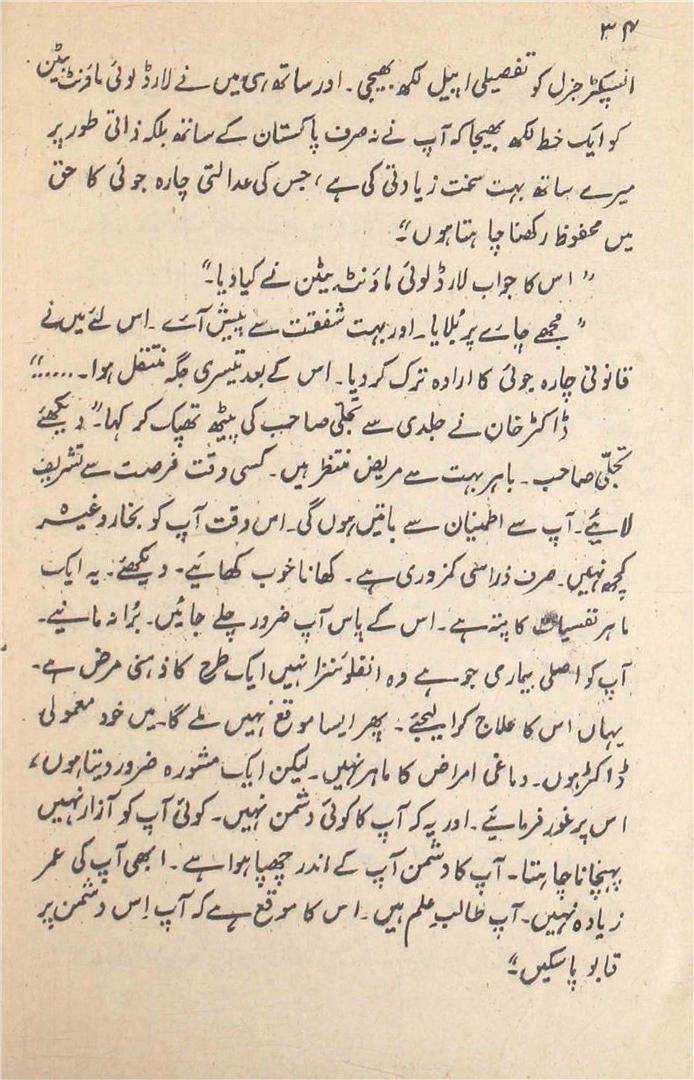 ۳۴
انسپکٹر جنرل کو تفصیلی اپیل لکھ بھیجی۔ اور ساتھ ہی میں نے لارڈ لوئی ماؤنٹ بیٹن
کو ایک خط لکھ بھیجا کہ آپ نے نہ صرف پاکستان کے ساتھ بلکہ ذاتی طور پر
میرے ساتھ بہت سخت زیادتی کی ہے، جس کی عدالتی چارہ جوئی کا حق
میں محفوظ رکھنا چاہتا ہوں"۔
"اس کا جواب لارڈ لوئی ماؤنٹ بیٹن نے کیا دیا۔"
"مجھے چاے پر بُلایا۔ اور بہت شفقت سے پیش آے۔ اس لئے میں نے
قانونی چارہ جوئی کا ارادہ ترک کر دیا۔ اس کے بعد تیسری جگہ منتقل ہوا۔....."
ڈاکٹر خان نے جلدی سے تجلّی صاحب کی پیٹھ تھپک کر کہا۔" دیکھئے
تجلّی صاحب۔ باہر بہت سے مریض منتظر ہیں۔ کسی وقت فرصت سے تشریف
لائیے۔ آپ سے اطمینان سے باتیں ہوں گی۔ اس وقت آپ کو بخار وغیرہ
کچھ نہیں۔ صرف ذرا سی کمزوری ہے۔ کھانا خوب کھائیے۔ دیکھئے۔ یہ ایک
ماہر نفسیات کا پتہ ہے۔ اس کے پاس آپ ضرور چلے جائیں۔ بُرا نہ مانیے۔
آپ کو اصلی بیماری جو ہے وہ انفلوئنزا نہیں ایک طرح کا ذہنی مرض ہے۔
یہاں اس کا علاج کرا لیجئے۔ پھر ایسا موقع نہیں ملے گا۔ میں خود معمولی
ڈاکٹر ہوں۔ دماغی امراض کا ماہر نہیں۔ لیکن ایک مشورہ ضرور دیتا ہوں،
اس پر غور فرمائیے۔ اور یہ کہ آپ کا کوئی دشمن نہیں۔ کوئی آپ کو آزار نہیں
پہنچانا چاہتا۔ آپ کا دشمن آپ کے اندر چھپا ہوا ہے۔ ابھی آپ کی عمر
زیادہ نہیں۔ آپ طالب علم ہیں۔ اس کا موقع ہے کہ آپ اِس دشمن پر
قابو پا سکیں۔"